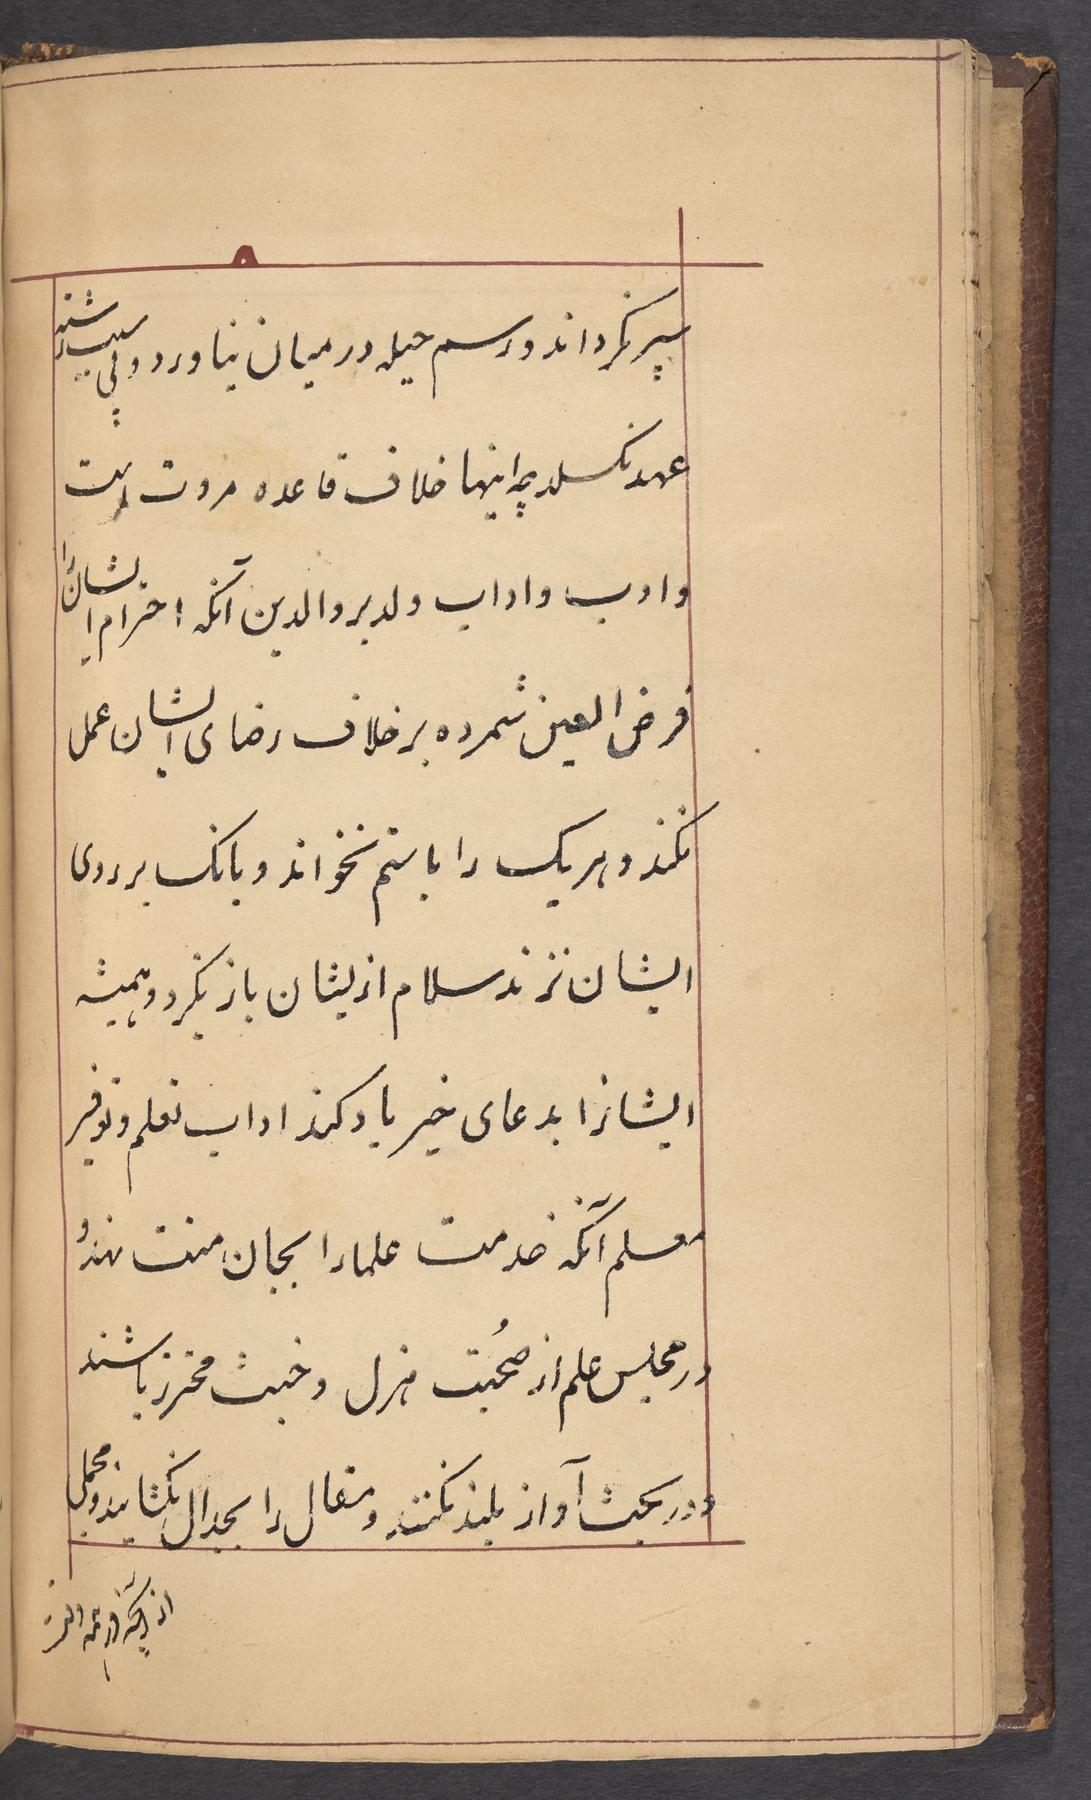 سپر نکرداند و رسم حیله در میان نیاورد و پی
عهد نکسلد چه اینها خلاف قاعده مروت است
و ادب و اداب ولد بر والدین آنکه احترام ایشان را
فرض العین شمرده بر خلاف رضای ایشان عمل
نکند و هر یک را باسم نخواند و بانک بر روی
ایشان نزند سلام از ایشان باز نکیرد و همیشه
ایشانرا بدعای خیر یاد کند اداب تعلم و توقیر
معلم آنکه خدمت علما را بجان منت نهد و
در مجلس علم از صحبت هزل و خبث محترز باشند
و در بحث آواز بلند نکنند و مقال را بجدال نکشایند و
از آنکه